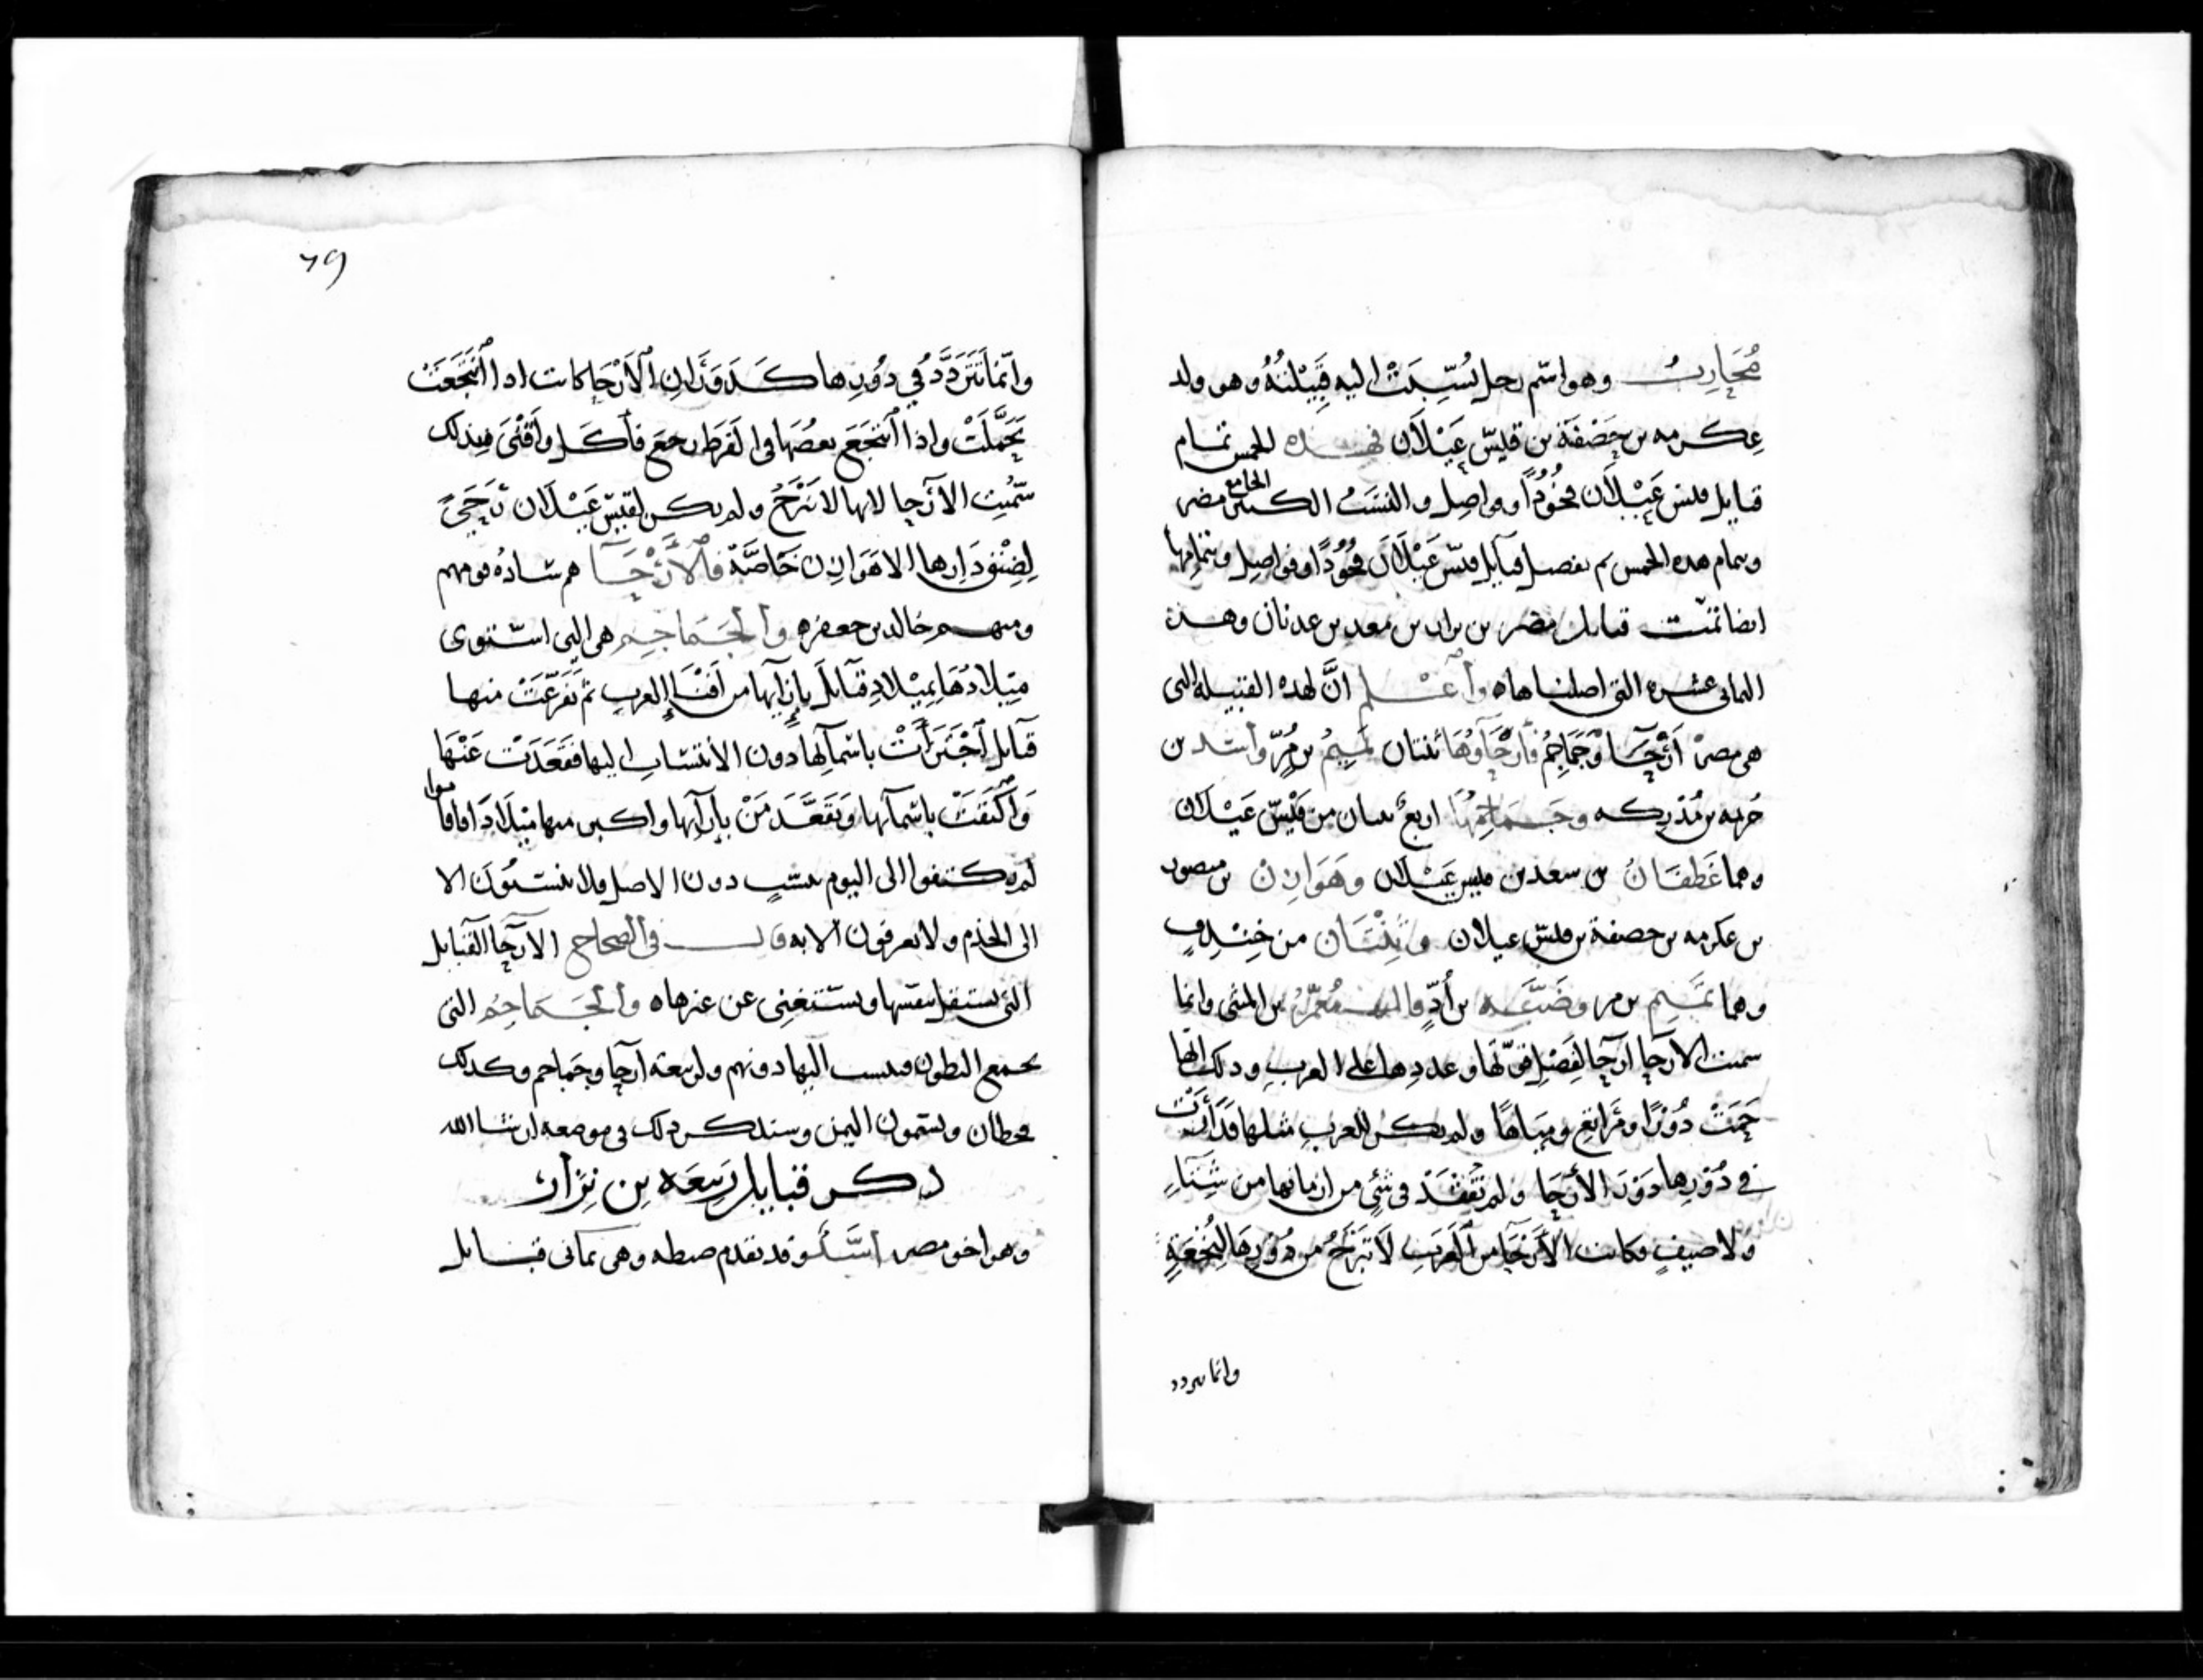 مُحَارِبُ وهو اسّم رجل نُسِّبَتْ اليه قَبِيْلتُهُ وهو ولد
عِكرمه بن خَصْفَة بن قيسّ عَيْلَان فهذه الخمس تمام
قبايل قيس عَيْلَان فخُوْذًا وفواصِل والنسَبُ الكبير الجامع مضر
وبتمام هده الخمس تم تفصيل قبآيل قيسّ عَيْلَان فخُوْذًا وفواصِل وبتمامِها
ايضا تمّت قبايل مضر بن نزار بن معد بن عدنان وهذه
الثمانى عشره التى اصلناهاه وأعْلم انَّ لهذه القبيله التى
هى مضرْ أَرْحَآءًا وَجَمَاجِمُ فأرْحَآوُهَا ثنتان تَمِيْمُ بن مُرّ وأسّد بن
خزيمه بن مُدْركه وجَمَاجِمُهَا اربعُ ثنتان من قَيْسّ عَيْلَان
وهما غَطفَانُ بن سعد بن قيس عَيْلَان وهَوَازِنْ بن منصور
بن عكرمه بن خصفة بن قيسّ عيلان وثِنْتَان من خِنْدِفٍ
وهما تَمِيم بن مر وضَبَّه بن أُدٍّ قال مُعَمَّرُ بن المثنى وانما
سميت الأرحا ارحآ لِفَضْلِ قوّتها وعددِها على العرب وذلك انّها
حَمَتْ دُوْرًا ومَرَاتع ومِيَاهًا ولم يكن للعرب مثلها فدَارَتْ
في دُوْرِها دَوْرَ الأرْحَا ولم تَبْعُدْ فى شئٍ من ازمانها من شِتَآءٍ
ولا صيفٍ فكانت الأرْحَآ من اَلعَرَب لَا تَبْرَحُ من دُوْرِهَا لِنُجْعَةٍ
وانما تتردد
٦٩
وانّما تَتَرَدَّدُ في دُوْرِها كَدَوَرَانِ اَلْأرْحَا كانت اذا اَنْتَجَعَتْ
تَحَمَّلَتْ واذا اَنْتَجَعَ بعضُهَا فى الفرط رجعَ فأكل واقتنى فبذلك
سّمُيتِ الأَرْحا لانها لا تَبْرَحُ ولم يكن لقيسّ عَيْلَان رَحَىً
لِضِيْقِ دَارِها الا هَوَازِن خَاصَّةً فاَلْأَرْحَآ هم سادُه قومهم
ومنهم خالد بن جعفره واَلجَمَاجِم هى التى اسّتوى
مِيْلادُهَا بِمِيْلادِ قبَآئلَ بإزآيها من أفنَآءِ العرب ثم تَفَرَّعَتْ منها
قبآيل اَجْتَزَأتْ باسّمآئها دون الأنتسّاب اليها فقَعَدَتْ عَنْهَا
وَاَكْتَفَتْ باسّمآئها وتَقَعَّدَ مَنْ بإزآئها واكبر منها مِيْلَادًا فاقاموا
لم يكتفوا الى اليوم بنسّبٍ دون الاصل ولا ينتسّبُوْن الا
الى الجذم ولا يعرفون الا به قال في الصحاح الأرْحآ القبايل
التى تستقل بنفسّها وتسّتغنى عن غيرهاه واَلجَمَاجِمُ التى
تجمع البطون فينسب اليها دونهم ولربيعة ارحآ وجَماجم وكذلك
قحطان ويسّمون اليمن وسنذكر ذلك فى موضعه ان شاالله
ذكر قبايل رَبِيعَه بن نِزَار
وهو اخو مضر وقد تقدم ضبطه وهى ثمانى قبايل